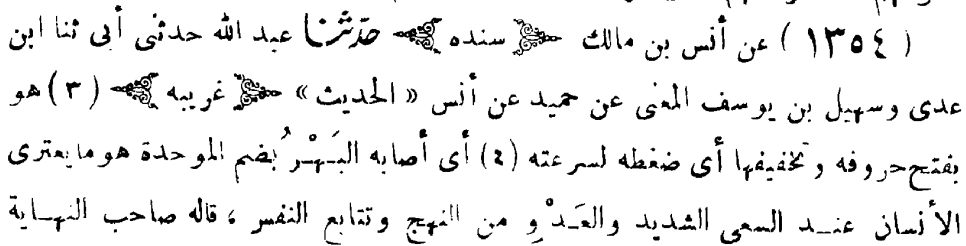 ( ١٣٥٤ ) عن أنس بن مالك ﴿ سنده ﴾ حدّثنا عبد الله حدثنى أبى ثنا ابن
عدى وسهيل بن يوسف المعنى عن حميد عن أنس « الحديث » ﴿ غريبه ﴾ (٣) هو
بفتح حروفه وتخفيفها أى ضغطه لسرعته (٤) أى أصابه البَهْرُ بضم الموحدة هو ما يعترى
الأنسان عند السعى الشديد والعَدْوِ من النهج وتتابع النفس ، قاله صاحب النهاية